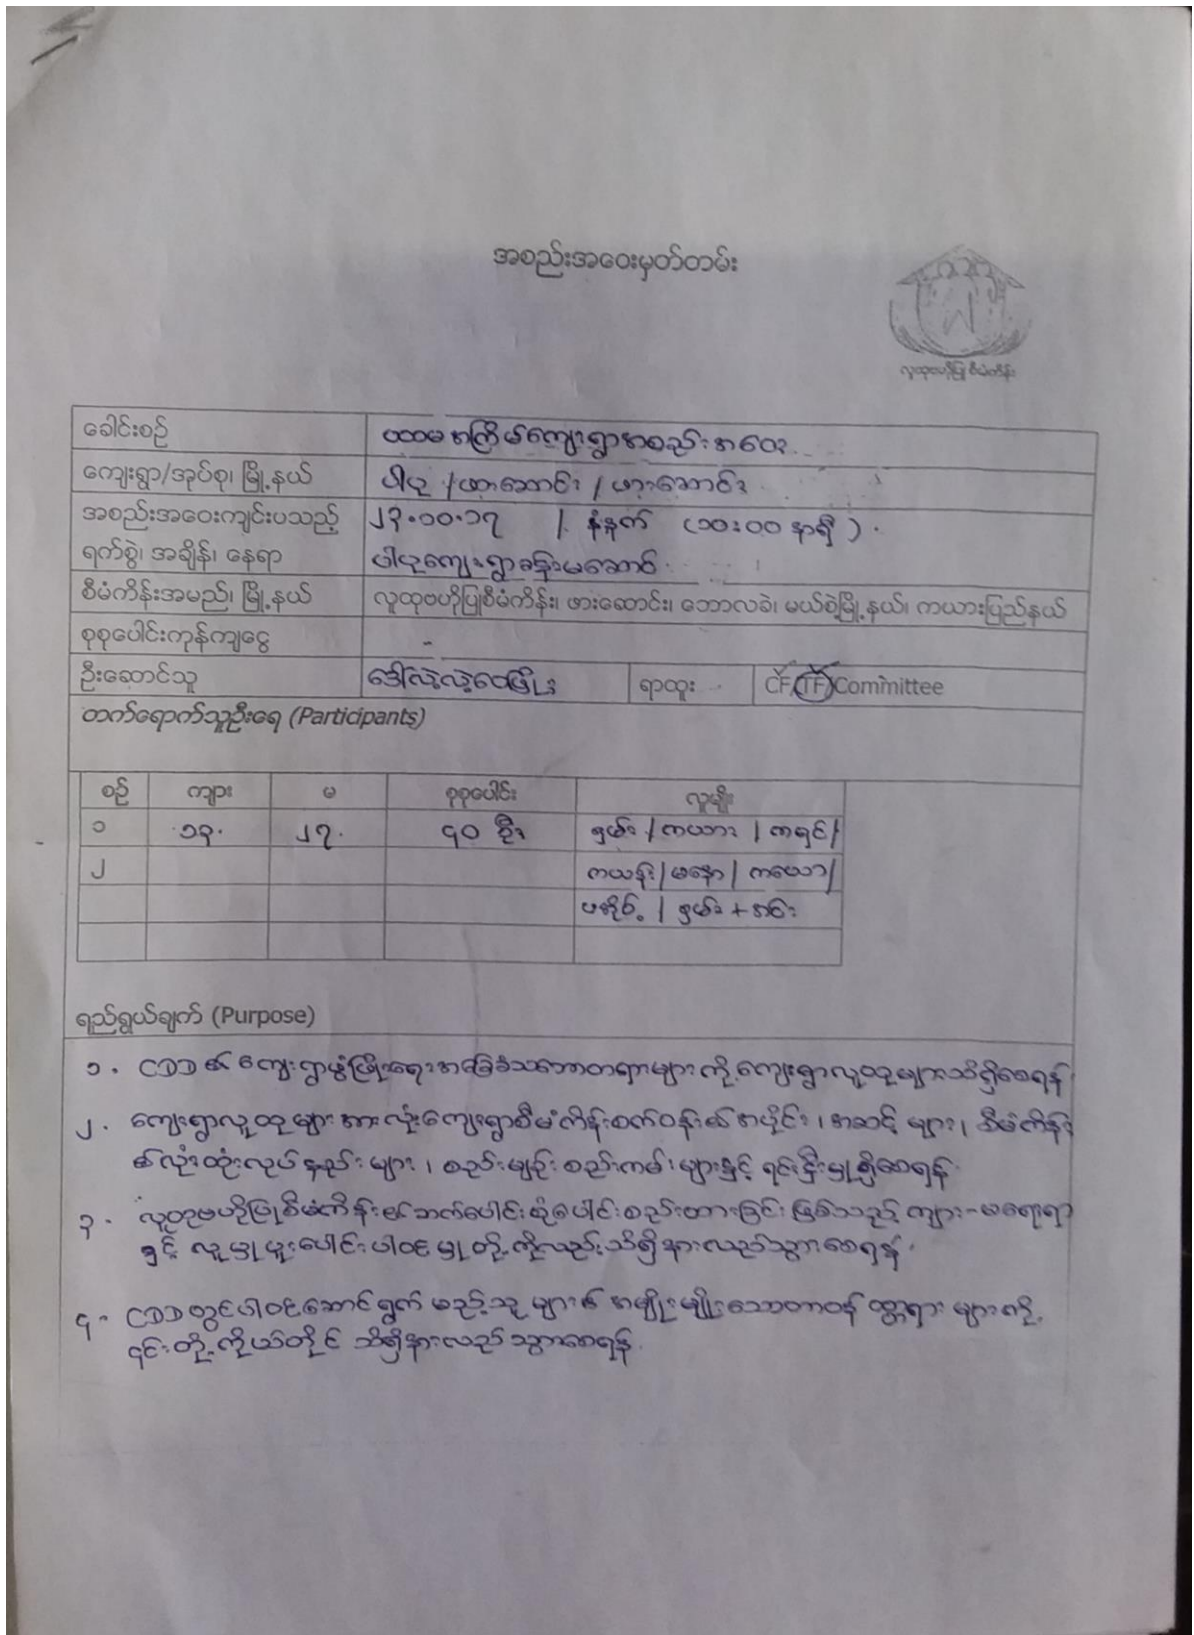 အစည်းအဝေးမှတ်တမ်း
လူထုဗဟိုပြု စီမံကိန်း
ခေါင်းစဉ် ပထမအကြိမ်ကျေးရွာအစည်းအဝေး
ကျေးရွာ/အုပ်စု၊ မြို့နယ် ပါပု / ဖားဆောင်း / ဖားဆောင်း
အစည်းအဝေးကျင်းပသည့် ၂၃.၁၀.၁၇ / နံနက် (၁၀:၀၀ နာရီ)
ရက်စွဲ၊ အချိန်၊ နေရာ ကျေးရွာခန်းမဆောင်
စီမံကိန်းအမည်၊ မြို့နယ် လူထုဗဟိုပြုစီမံကိန်း၊ ဖားဆောင်း၊ ဘောလခဲ၊ မယ်စဲ့မြို့နယ်၊ ကယားပြည်နယ်
စုစုပေါင်းကုန်ကျငွေ -
ဦးဆောင်သူ ဒေါ်လဲ့လဲ့ဝေဖြိုး ရာထူး CF/TF/Committee
တက်ရောက်သူဦးရေ (Participants)
စဉ် ကျား မ စုစုပေါင်း လူမျိုး
၁ ၁၃. ၂၇. ၄၀ ဦး ရှမ်း / ကယား / ကရင် /
၂ ကယန်း / မနော / ကယော /
ပအိုဝ့် / ရှမ်း + အင်း
ရည်ရွယ်ချက် (Purpose)
၁. CDD ၏ ကျေးရွာဖွံ့ဖြိုးရေးအခြေခံသဘောတရားများကို ကျေးရွာလူထုများသိရှိစေရန်
၂. ကျေးရွာလူထုများအားလုံးကျေးရွာစီမံကိန်းစက်ဝန်း၏ အပိုင်း၊ အဆင့်များ၊ စီမံကိန်း
၏လုံးထုံးလုပ်နည်းများ၊ စည်းမျဉ်းစည်းကမ်းများနှင့် ရင်းနှီးမှုရှိစေရန်
၃. လူထုဗဟိုပြုစီမံကိန်း၏ဘက်ပေါင်းစုံပေါင်းစည်းထားခြင်းဖြစ်သည့် ကျား-မရေးရာ
နှင့် လူမှုပူးပေါင်းပါဝင်မှုတို့ကိုလည်းသိရှိနားလည်သွားစေရန်.
၄. CDD တွင်ပါဝင်ဆောင်ရွက်မည့်သူများ၏ အမျိုးမျိုးသောတာဝန်ဝတ္တရားများကို
၎င်းတို့ကိုယ်တိုင် သိရှိနားလည်သွားစေရန်.